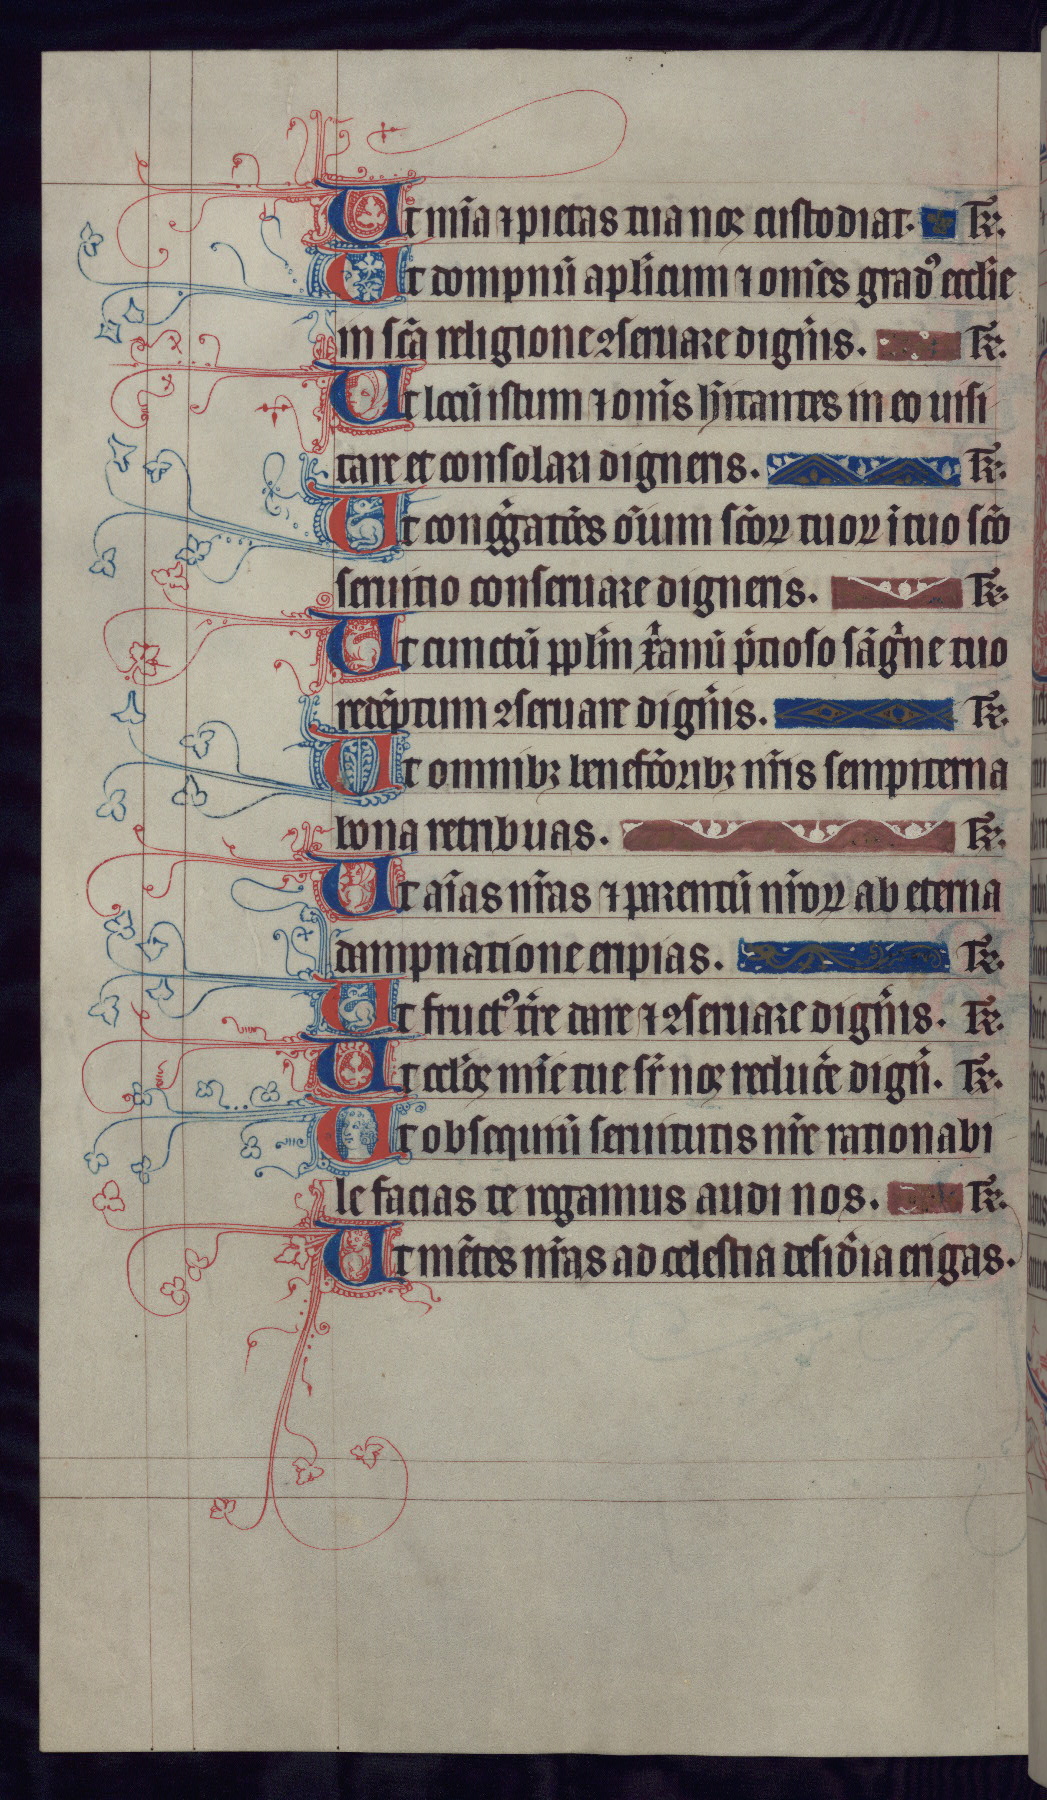 Ut mīa ⁊ pietas tua nos custodiat. Te r̄.
Ut dompnū apl̄icum ⁊ om̄es grad᷒ eccl̄ie
in sc̄a religione ꝯseruare dign̄is. Te r̄.
Ut locū istum ⁊ om̄s h̄itantes in eo uisi
tare et consolari digneris. Te r̄.
Ut congͣgac̄ōes om̄ium sc̄oꝝ tuoꝝ ī tuo sc̄o
seruitio conseruare digneris. Te r̄.
Ut cunctū pplm̄ xp̄ianū p̄tioso sāgͥne tuo
redēptum ꝯseruare dign̄is. Te r̄.
Ut omnibꝫ benefc̄oribꝫ nr̄is sempiterna
bona retribuas. Te r̄.
Ut aīas nr̄as ⁊ parentū nr̄oꝝ ab eterna
dampnatione eripias. Te r̄.
Ut fruct᷒ tr̄e dare ⁊ ꝯseruare dign̄is. Te r̄.
Ut oclōs mīe tue sr̄ nos reducē dign̄. Te r̄.
Ut obsequiū seruitutis nr̄e rationabi
le facias te rogamus audi nos. Te r̄.
Ut mētes nr̄as ad celestia desid̄ia erigas.